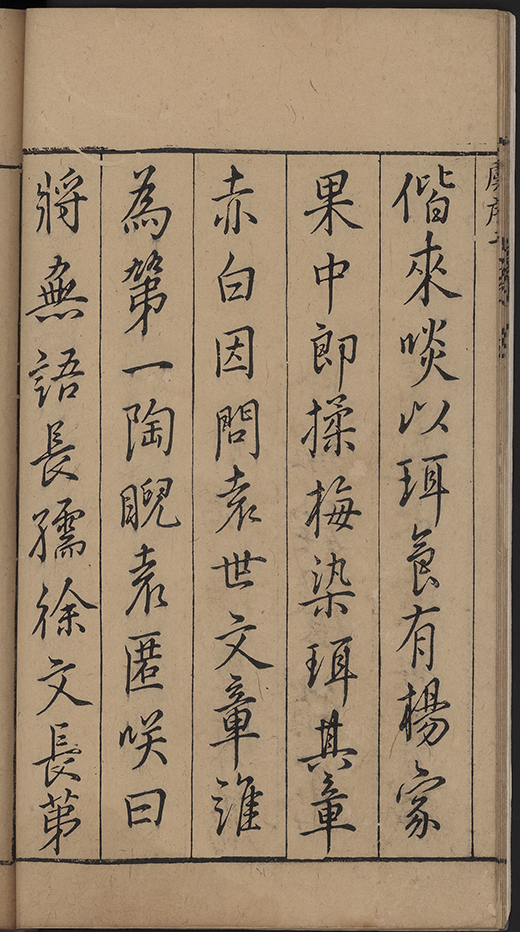 虞序
偕來啖以珥食有楊家
果中郎揉梅染珥其章
赤白因問袁世文章誰
為第一陶睨袁匿咲曰
將無語長孺徐文長苐